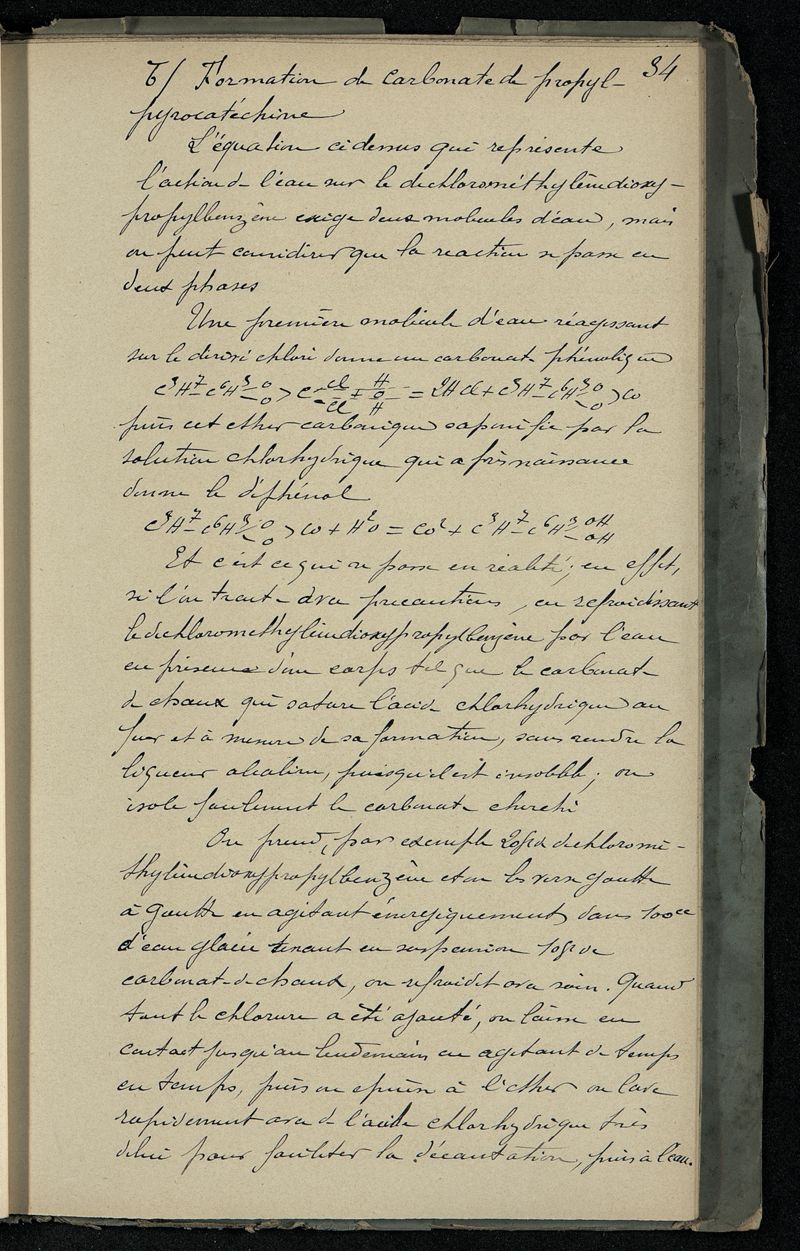 34
6/ Formation de carbonate de propyl-
pyrocatéchine
L'équation ci dessus qui représente
l'action de l'eau sur le dichlorométhylènedioxy-
propylbenzène exige deux molécules d'eau, mais
on peut considérer que la reaction se passe en
deux phases
Une première molécule d'eau réagissant
sur le dérivé chloré donne un carbonate phénolique
C³H⁷-C⁶H³-O-O>C-Cl-Cl + H-O-H = 2HCl + C³H⁷-C⁶H³-O-O>CO
puis cet ether carbonique saponifié par la
solution chlorhydrique qui a pris naissance
donne le diphénol
C³H⁷-C⁶H³-O-O>CO + H²O = CO² + C³H⁷-C⁶H³-OH-OH
Et c'est ce qui se passe en réalité; en effet,
si l'on traite avec precautions, en refroidissant
le dichloromethylènedioxypropylbenzène par l'eau
en présence d'un corps tel que le carbonate
de chaux qui sature l'acide chlorhydrique au
fur et à mesure de sa formation, sans rendre la
liqueur alcaline, puisqu'il est insoluble; on
isole facilement le carbonate cherché
On prend, par exemple 20gr de dichloromé-
thylènedioxypropylbenzène et on les verse goutte
à goutte en agitant énergiquement dans 100cc
d'eau glacée tenant en suspension 10gr de
carbonate de chaux, on refroidit avec soin. Quand
tout le chlorure a été ajouté, on laisse en
contact jusqu'au lendemain en agitant de temps
en temps, puis on epuise à l'ether on lave
rapidement avec de l'acide chlorhydrique très
dilué pour faciliter la décantation, puis à l'eau.